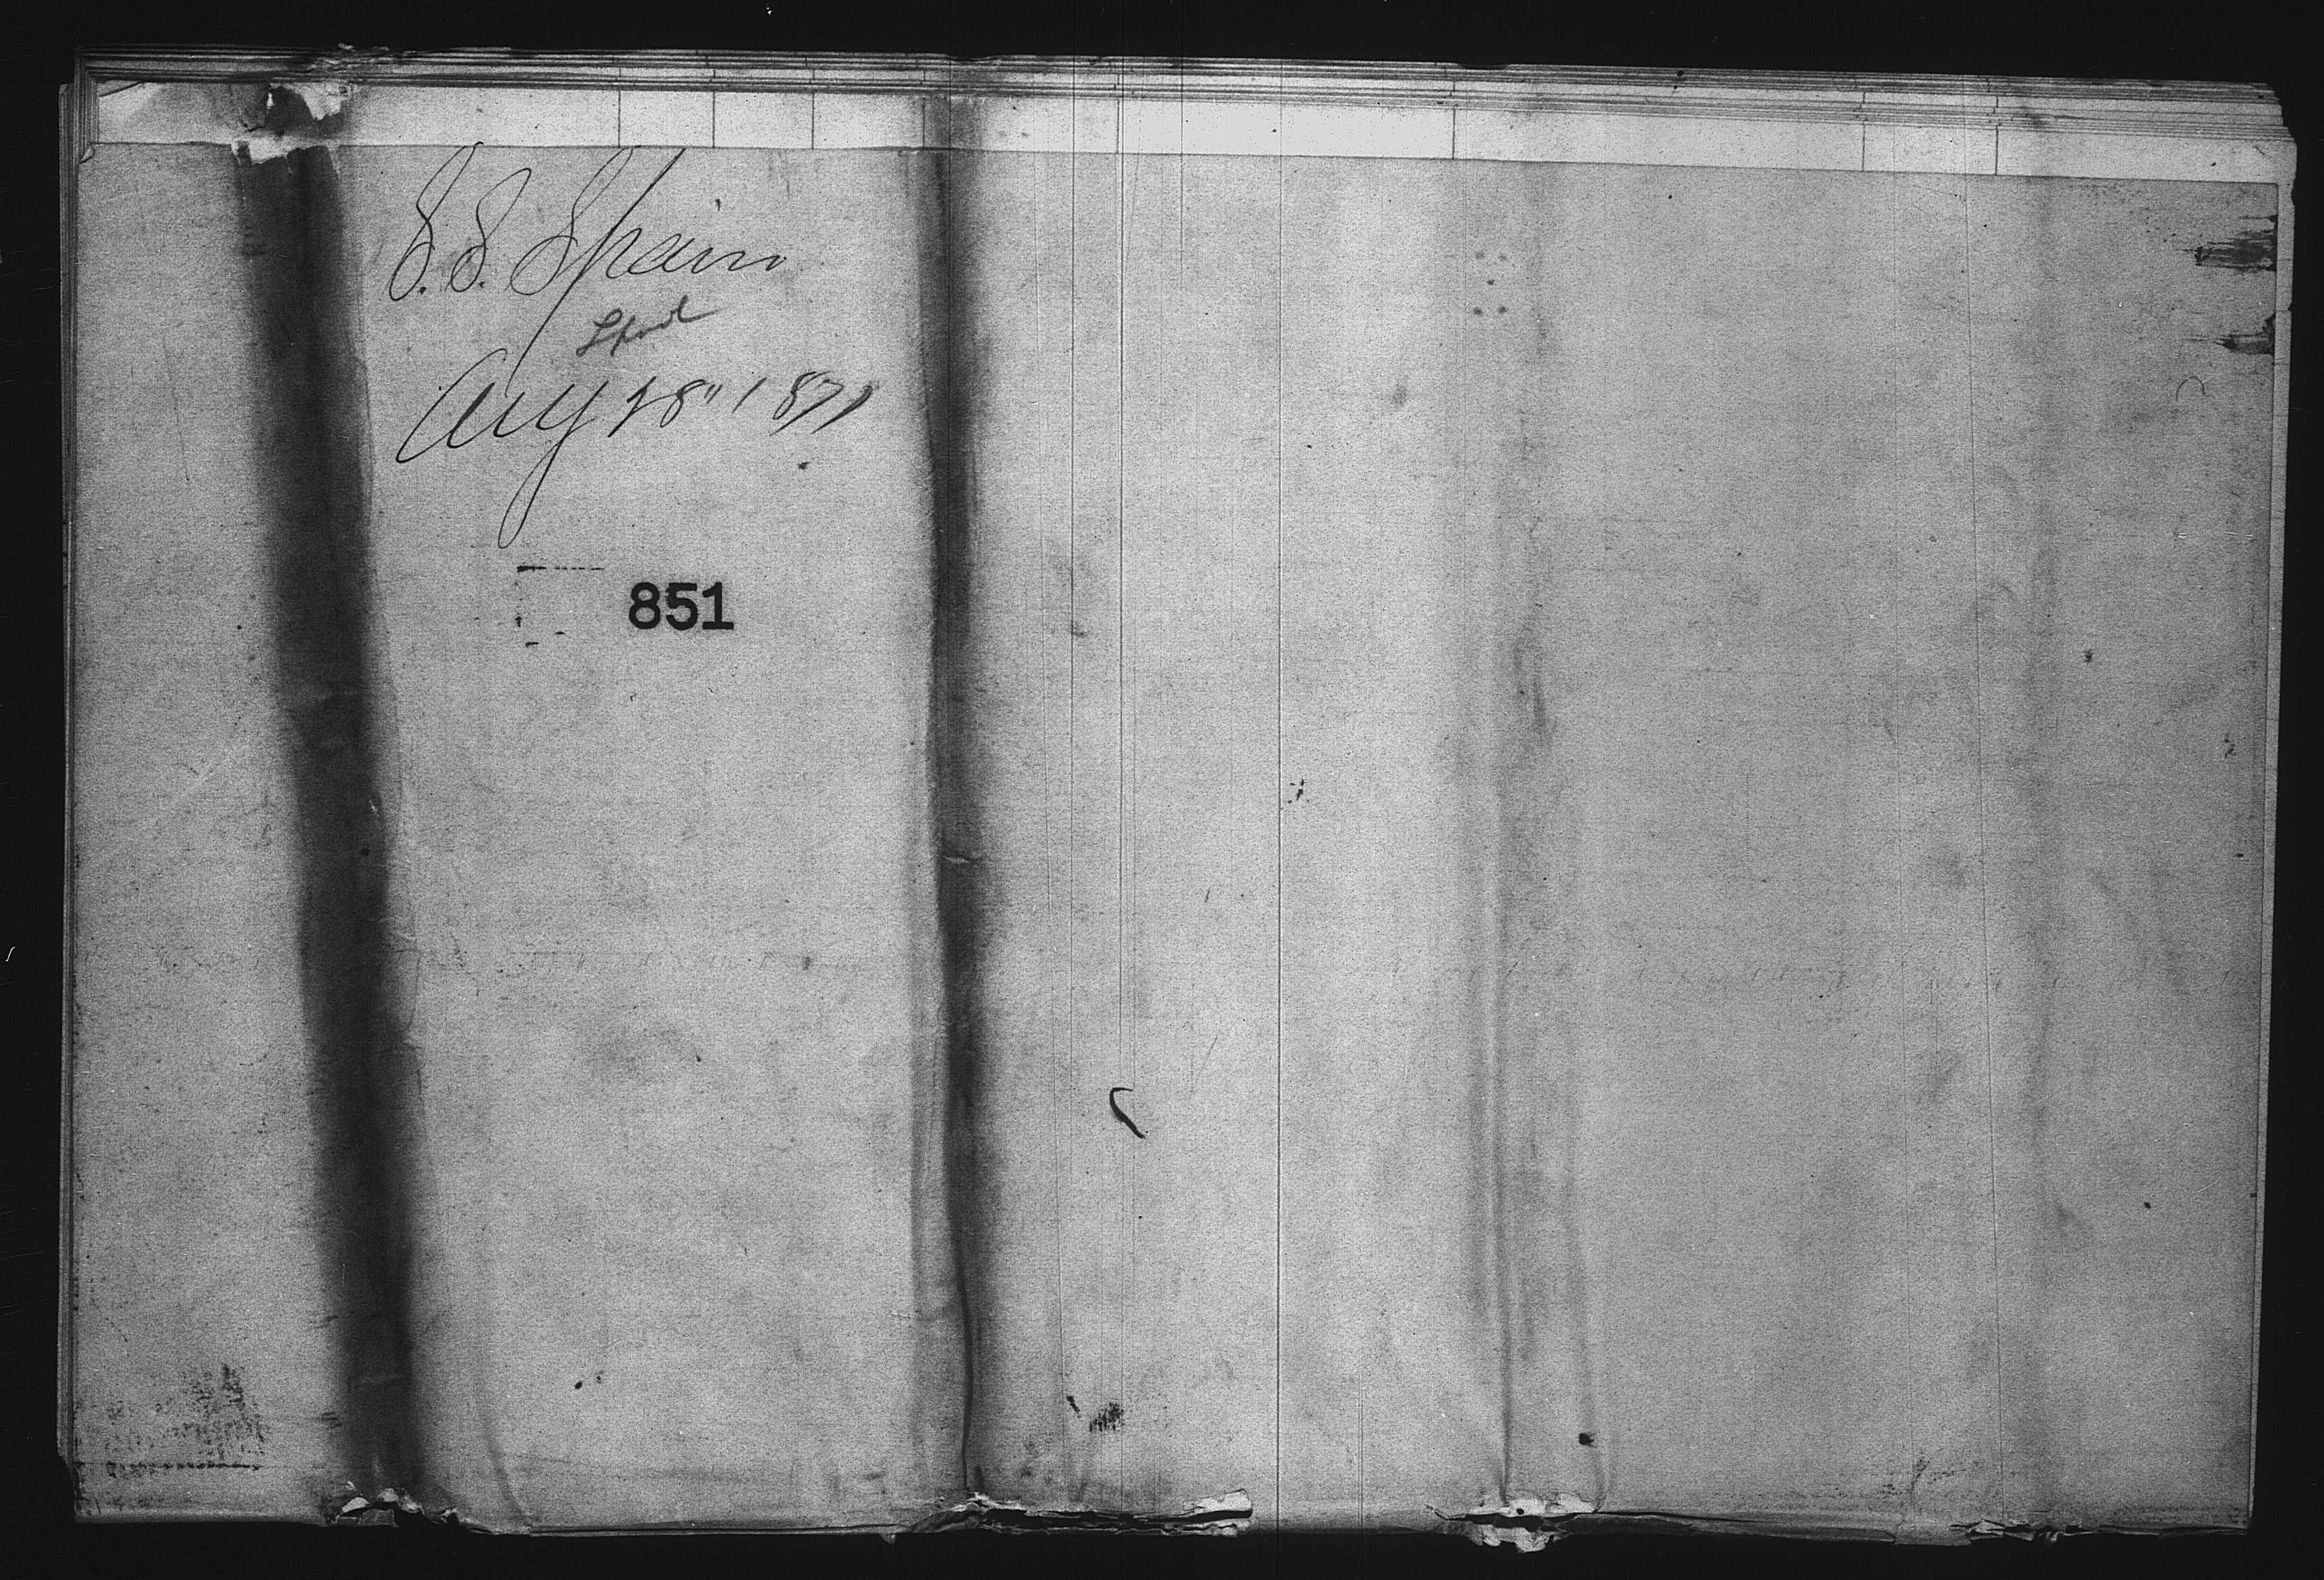 S.S. Spain
Lpool
Aug 28" 1871
851